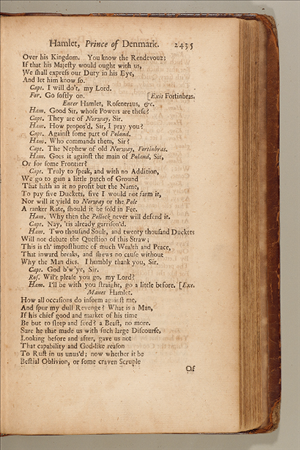 Hamlet, Prince of Denmark. 2435
Over his Kingdom. You know the Rendevouz:
If that his Majesty would ought with us,
We shall express our Duty in his Eye,
And let him know so.
Capt. I will do't, my Lord.
For. Go softly on. [Exit Fortinbras.
Enter Hamlet, Rosencraus, &c.
Ham. Good Sir, whose Powers are these?
Capt. They are of Norway, Sir.
Ham. How propos'd, Sir, I pray you?
Capt. Against some part of Poland.
Ham. Who commands them, Sir?
Capt. The Nephew of old Norway, Fortinbras.
Ham. Goes it against the main of Poland, Sir,
Or for some Frontier?
Capt. Truly to speak, and with no Addition,
We go to gain a little patch of Ground
That hath in it no profit but the Name,
To pay five Duckets, five I would not farm it,
Nor will it yield to Norway or the Pole
A ranker Rate, should it be sold in Fee.
Ham. Why then the Pollock never will defend it.
Capt. Nay, 'tis already garrison'd.
Ham. Two thousand Souls, and twenty thousand Duckets
Will not debate the Question of this Straw;
This is th' imposthume of much Wealth and Peace,
That inward breaks, and shews no cause without
Why the Man dies. I humbly thank you, Sir.
Capt. God b'w'ye, Sir.
Ros. Will't please you go, my Lord?
Ham. I'll be with you straight, go a little before. [Exe.
Manet Hamlet.
How all occasions do inform against me,
And spur my dull Revenge? What is a Man,
If his chief good and market of his time
Be but to sleep and feed? a Beast, no more.
Sure he that made us with such large Discourse,
Looking before and after, gave us not
That capability and God-like reason
To Rust in us unus'd; now whether it be
Bestial Oblivion, or some craven Scruple
Of